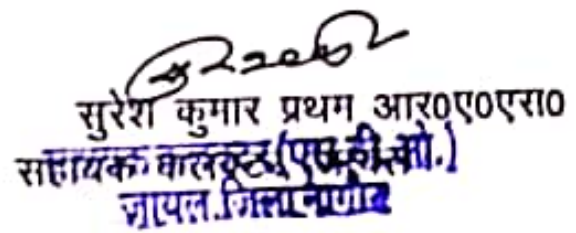 सुरेश कुमार प्रथम आर०ए०एस०
सहायक कलक्टर (एस.डी.ओ.)
जायल जिला नागौर